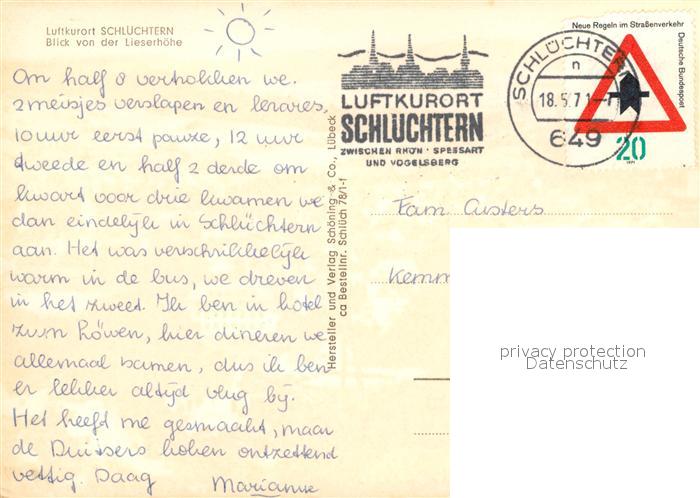 Luftkurort SCHLÜCHTERN
Blick von der Lieserhöhe
Om half 8 vertrokken we.
2 meisjes verslapen en lerares,
10 uur eerst pauze, 12 uur
tweede en half 2 derde om
kwart voor drie kwamen we
dan eindelijk in Schlüchtern
aan. Het was verschrikkelijk
warm in de bus, we dreven
in het zweet. Ik ben in hotel
zum Löwen, hier dineren we
allemaal samen, dus ik ben
er lekker altijd vlug bij.
Het heeft me gesmaakt, maar
de Duitsers koken ontzettend
vettig. Daag Marianne
Hersteller und Verlag Schöning & Co., Lübeck
ca Bestellnr. Schlüch 78/1-f
LUFTKURORT
SCHLÜCHTERN
ZWISCHEN RHÖN · SPESSART
UND VOGELSBERG
SCHLÜCHTERN
n
18.5.71
649
Neue Regeln im Straßenverkehr
Deutsche Bundespost
20
1971
Fam Custers
Kemm
privacy protection
Datenschutz